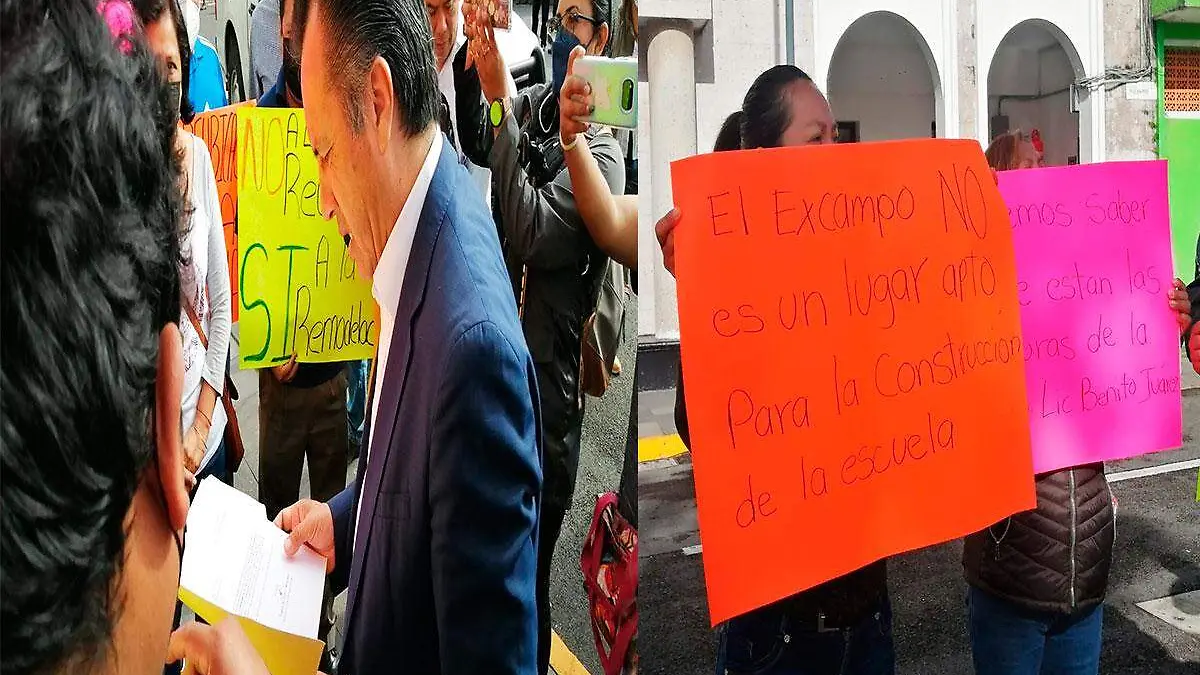 NO A LA
SI A la
Remodelac
El Excampo NO
es un lugar apto
Para la Construcción
de la escuela
emos Saber
e estan las
oras de la
Lic Benito Juárez